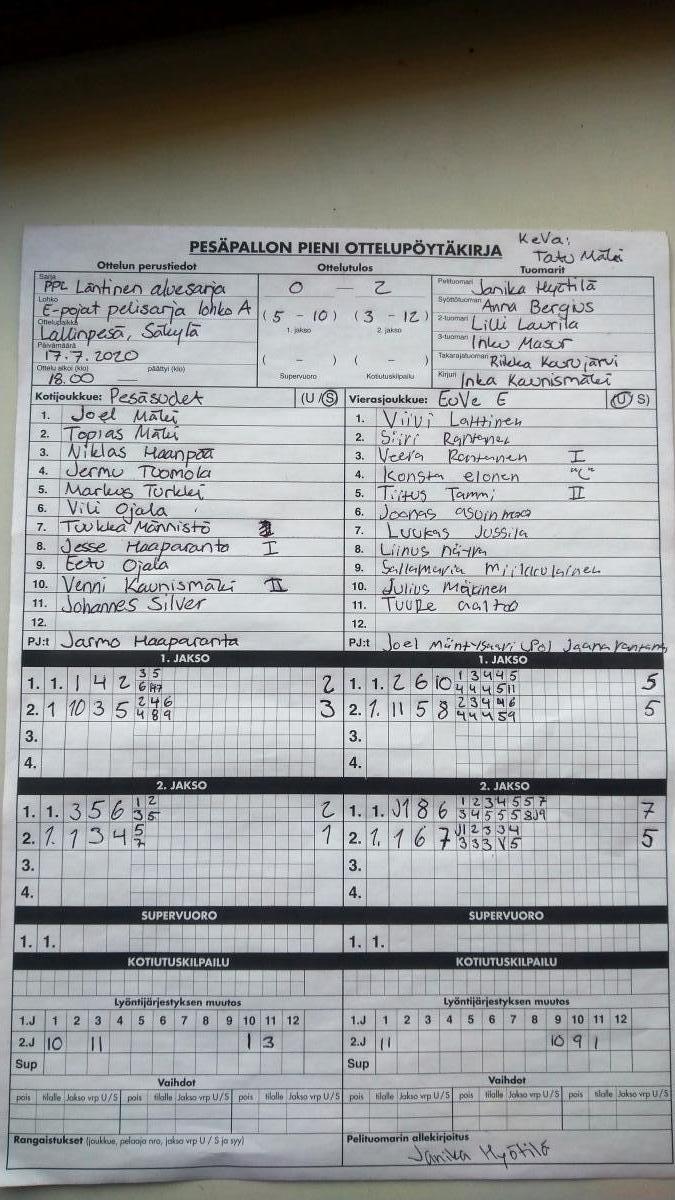 KeVa:
PESÄPALLON PIENI OTTELUPÖYTÄKIRJA
Tatu Mäki
Ottelun perustiedot Ottelutulos Tuomarit
Sarja PPL Läntinen aluesarja
Lohko E-pojat pelisarja lohko A
Ottelupaikka Lallinpesä, Säkylä
Päivämäärä 17.7.2020
Ottelu alkoi (klo) päättyi (klo)
18.00 —
0 — 2
(5 - 10) (3 - 12)
1. jakso 2. jakso
( - ) ( - )
Supervuoro Kotiutuskilpailu
Pelituomari Janika Hyötilä
Syöttötuomari Anna Bergius
2-tuomari Lilli Laurila
3-tuomari Inku Masur
Takarajatuomari Riikka Karujärvi
Kirjuri Inka Kaunismäki
Kotijoukkue: Pesäsudet (U/S)
1. Joel Mäki
2. Topias Mäki
3. Niklas Haanpää
4. Jermu Tuomola
5. Markus Turkki
6. Vili Ojala
7. Tuukka Männistö
8. Jesse Haaparanta I
9. Eetu Ojala
10. Venni Kaunismäki II
11. Johannes Silver
12.
PJ:t Jarmo Haaparanta
Vierasjoukkue: EuVe E (U/S)
1. Viivi Lahtinen
2. Siiri Rantanen
3. Veera Rantanen I
4. Konsta elonen "C"
5. Tiitus Tammi II
6. Joonas asuinmaa
7. Luukas Jussila
8. Liinus
9. Sallamaria Miikkulainen
10. Julius Mäkinen
11. Tuure aalto
12.
PJ:t Joel Mäntysaari (Po) Jaana rantanen
1. JAKSO
1. 1. 1 4 2 3 5 2
6
2. 1 10 3 5 2 4 6 3
4 8 9
3.
4.
1. JAKSO
1. 1. 2 6 10 1 3 4 4 5 5
4 4 4 5 11
2. 1. 11 5 8 2 3 4 4 6 5
4 4 4 5 9
3.
4.
2. JAKSO
1. 1. 3 5 6 1 2 2
3 5
2. 1. 1 3 4 5 1
7
3.
4.
2. JAKSO
1. 1. 1 8 6 1 2 3 4 5 5 7 7
3 4 5 5 5 8 9
2. 1. 1 6 7 1 2 3 3 4 5
3 3 3 V 5
3.
4.
SUPERVUORO SUPERVUORO
1. 1. 1. 1.
KOTIUTUSKILPAILU KOTIUTUSKILPAILU
Lyöntijärjestyksen muutos
1.J 1 2 3 4 5 6 7 8 9 10 11 12
2.J 10 11 1 3
Sup
Lyöntijärjestyksen muutos
1.J 1 2 3 4 5 6 7 8 9 10 11 12
2.J 11 10 9 1
Sup
Vaihdot Vaihdot
pois tilalle Jakso vrp U/S pois tilalle Jakso vrp U/S pois tilalle Jakso vrp U/S
pois tilalle Jakso vrp U/S pois tilalle Jakso vrp U/S pois tilalle Jakso vrp U/S
Rangaistukset (joukkue, pelaaja nro, jakso vrp U / S ja syy)
Pelituomarin allekirjoitus
Janika Hyötilä